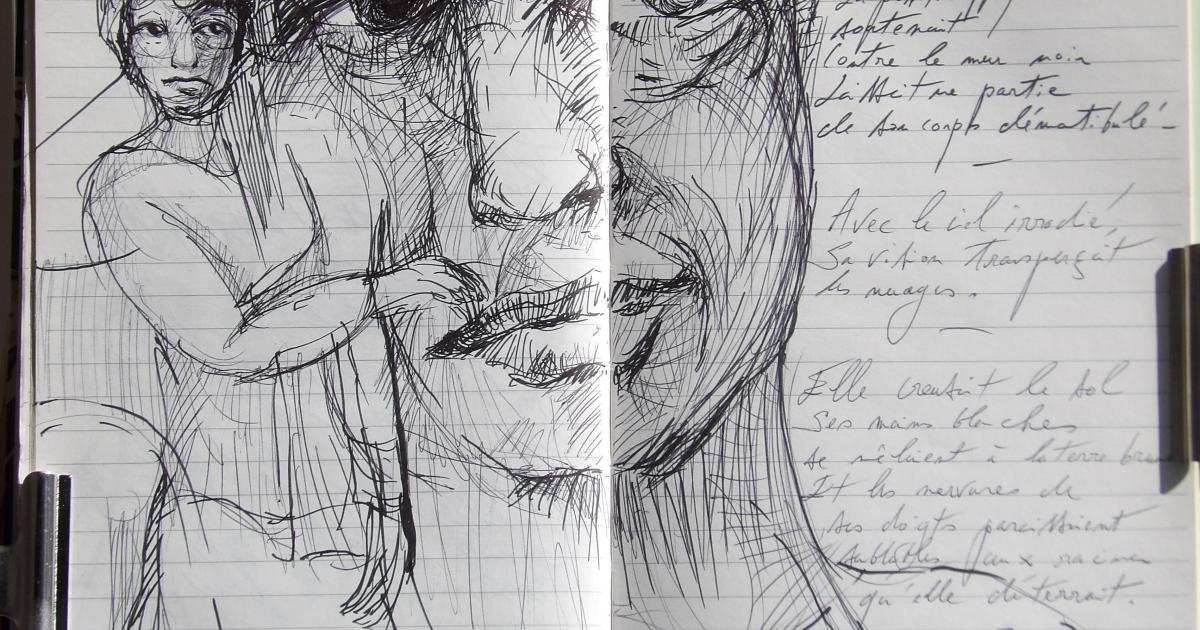 soutenait
Contre le mur noir
Laissait une partie
de son corps démantibulé
Avec le ciel irradié,
Sa vision transperçait
les nuages.
Elle creusait le sol
Ses mains blanches
se mêlaient à la terre brune
Et les nervures de
ses doigts paraissaient
semblables aux racines
qu'elle déterrait.